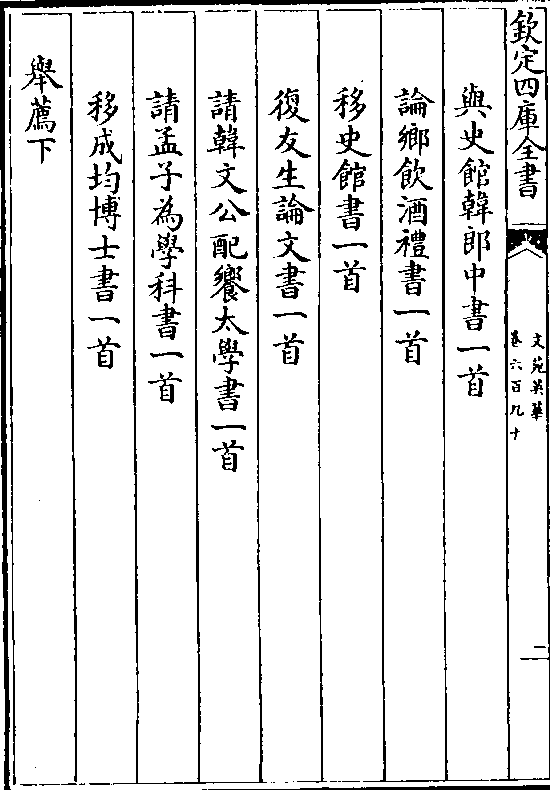 欽定四庫全書
文苑英華
卷六百九十
二
與史館韓郎中書一首
論鄉飲酒禮書一首
移史館書一首
復友生論文書一首
請韓文公配饗太學書一首
請孟子為學科書一首
移成均博士書一首
舉薦下